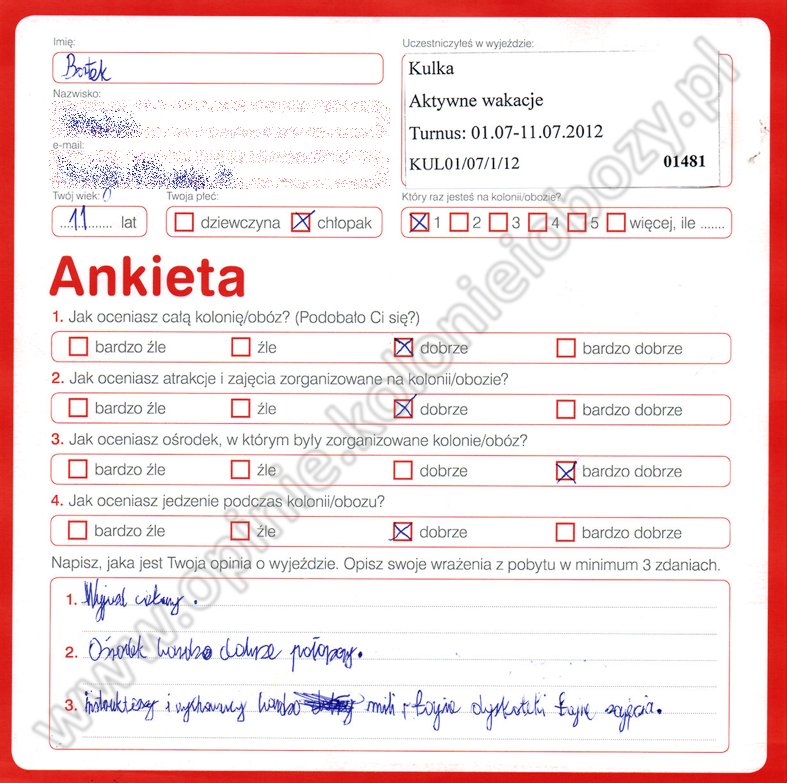 Imię:
Bartek
Uczestniczyłeś w wyjeździe:
Kulka
Aktywne wakacje
Turnus: 01.07-11.07.2012
KUL01/07/1/12 01481
Nazwisko:
e-mail:
Twój wiek: Twoja płeć: Który raz jesteś na kolonii/obozie?
....11........ lat dziewczyna chłopak 1 2 3 4 5 więcej, ile .......
Ankieta
1. Jak oceniasz całą kolonię/obóz? (Podobało Ci się?)
bardzo źle źle dobrze bardzo dobrze
2. Jak oceniasz atrakcje i zajęcia zorganizowane na kolonii/obozie?
bardzo źle źle dobrze bardzo dobrze
3. Jak oceniasz ośrodek, w którym były zorganizowane kolonie/obóz?
bardzo źle źle dobrze bardzo dobrze
4. Jak oceniasz jedzenie podczas kolonii/obozu?
bardzo źle źle dobrze bardzo dobrze
Napisz, jaka jest Twoja opinia o wyjeździe. Opisz swoje wrażenia z pobytu w minimum 3 zdaniach.
1. Wyjazd ciekawy.
2. Ośrodek bardzo dobrze położony.
3. instruktorzy i wychowawcy bardzo mili, fajne dyskoteki fajne zajęcia.
www.opinie.kolonieiobozy.pl